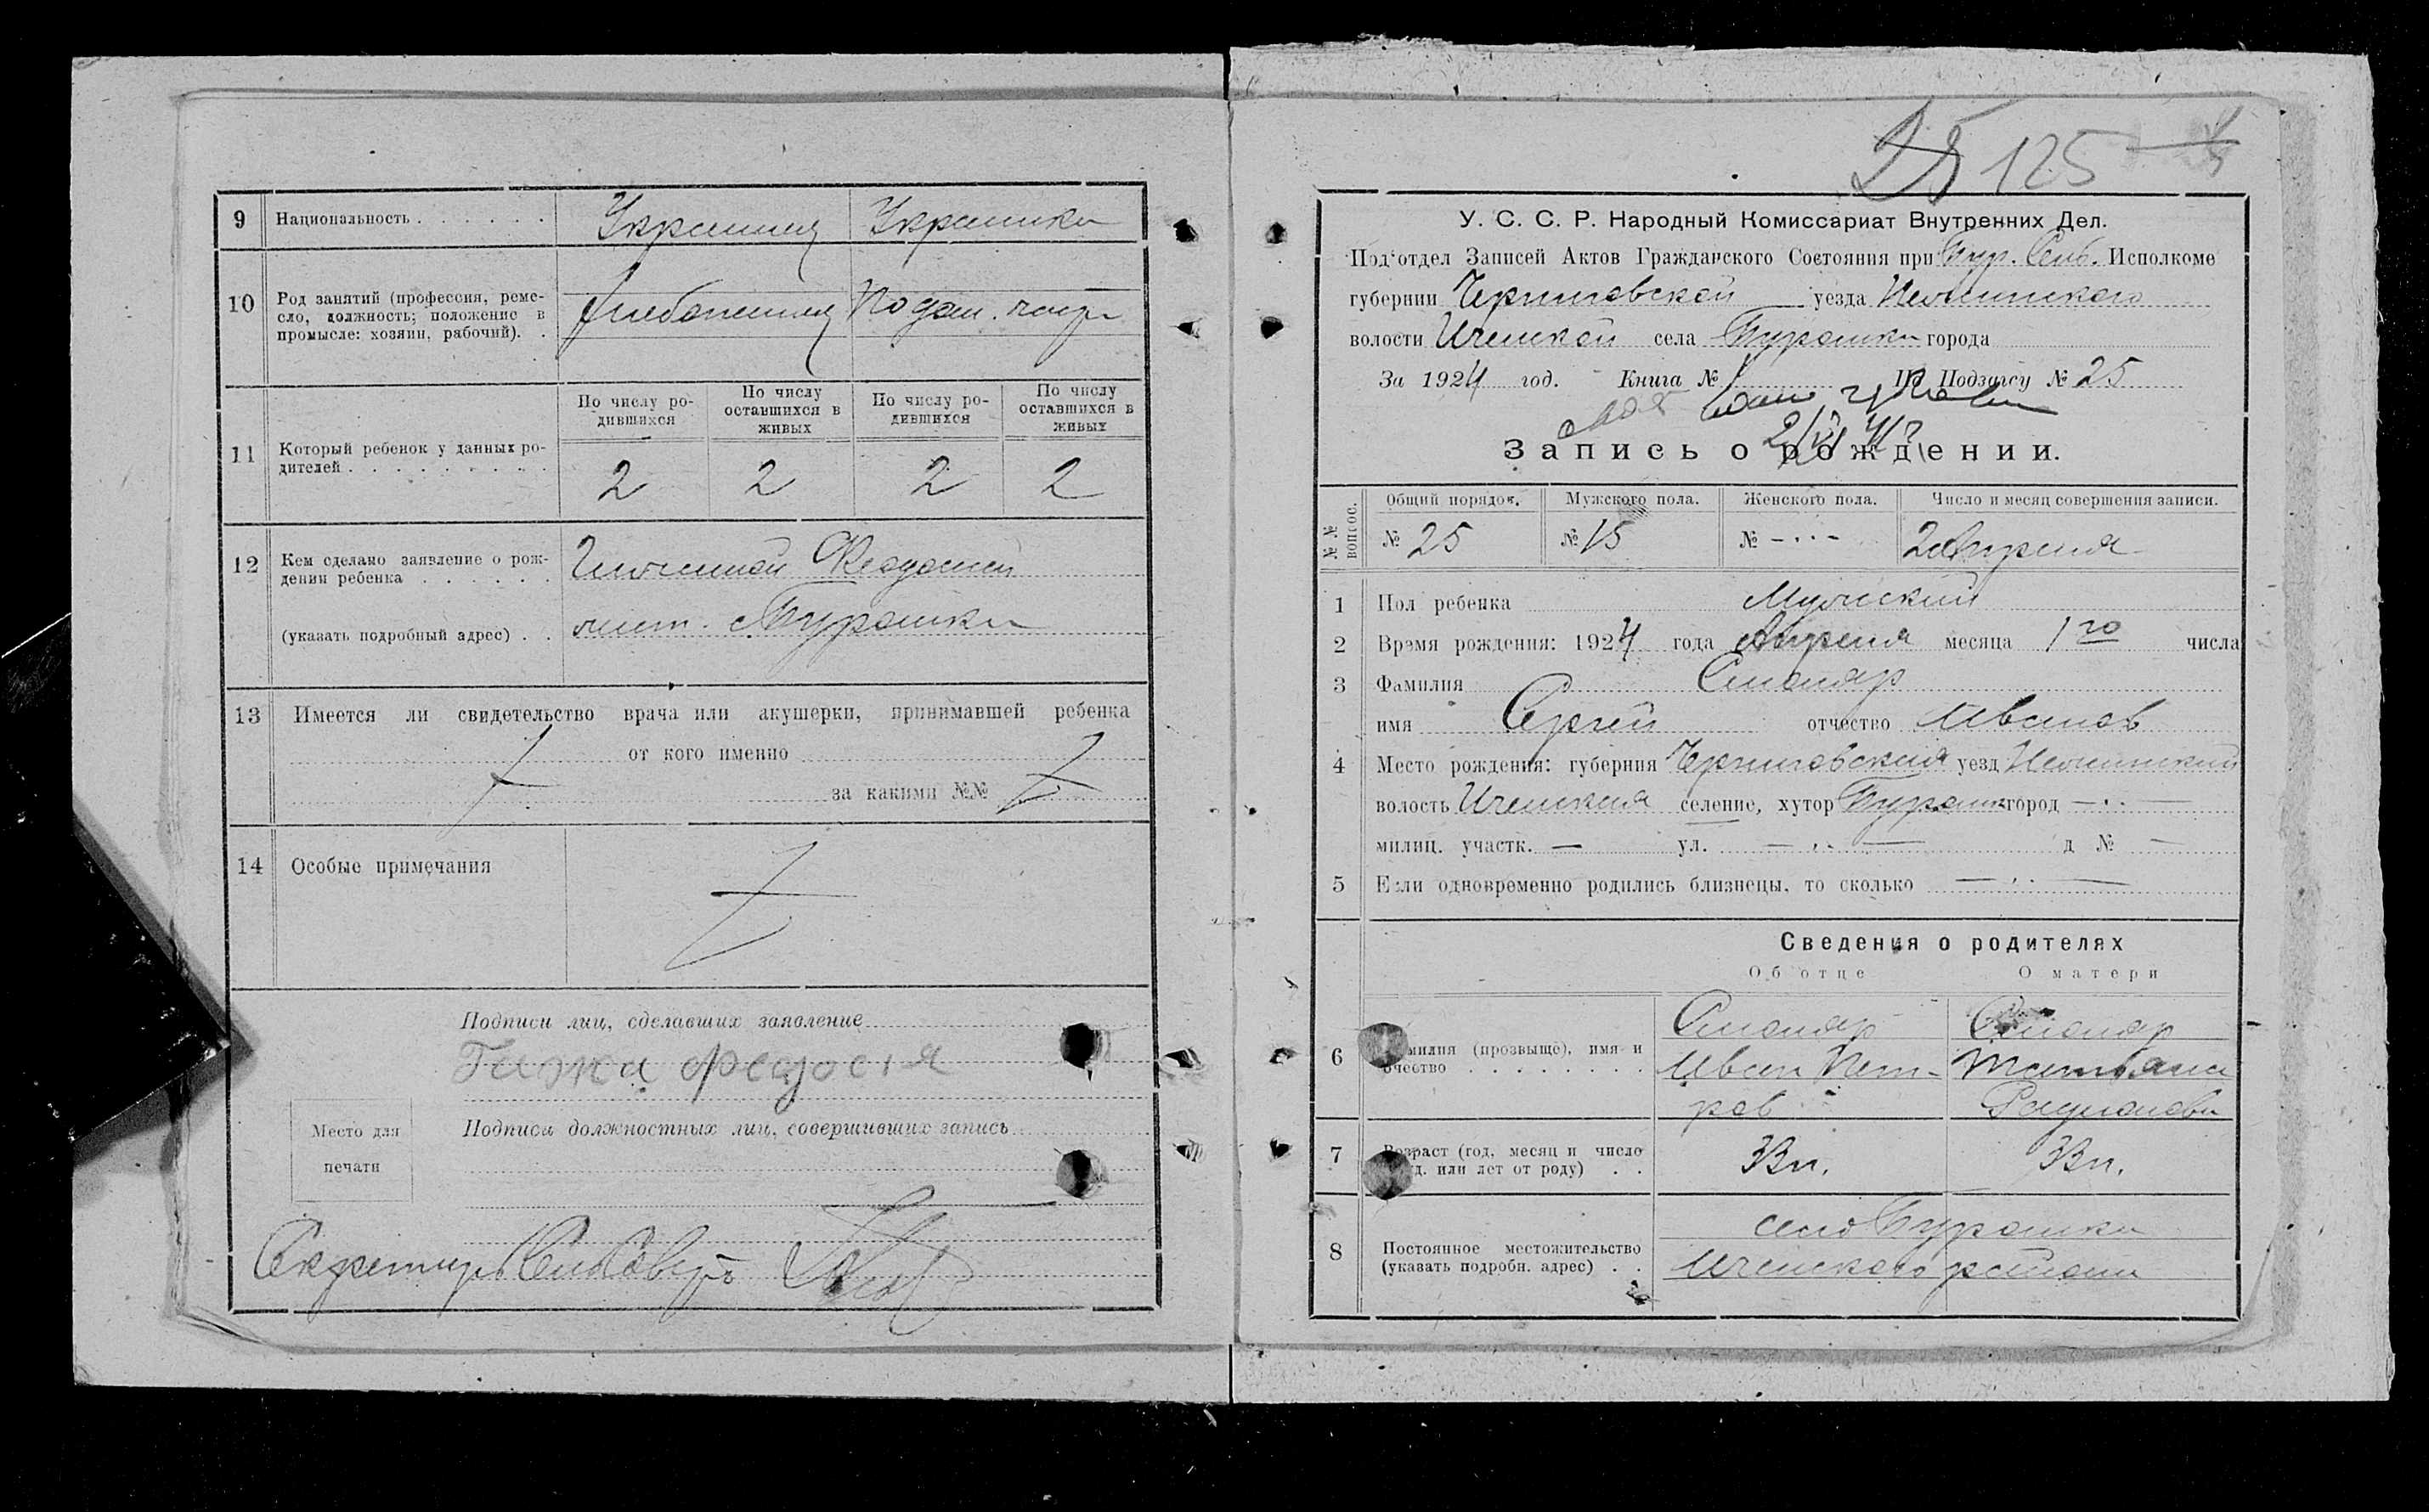 9 Национальность Украинец Украинка
10 Род занятий (профессия, реме-
сло, должность; положение в
промысле: хозяин, рабочий). Хлебопашец По дом.
11 Который ребенок у данных ро-
дителей
По числу ро-
дившихся
По числу
оставшихся в
живых
По числу ро-
дившихся
По числу
оставшихся в
живых
2 2 2 2
12 Кем сделано заявление о рож-
дении ребенка Феодосией
(указать подробный адрес) жит. с
13 Имеется ли свидетельство врача или акушерки, принимавшей ребенка
от кого именно
за какими №№
14 Особые примечания
Подписи лиц, сделавших заявление
Подписи должностных лиц, совершивших запись
Место для
печати
Секретарь
25 125
У. С. С. Р. Народный Комиссариат Внутренних Дел.
Под'отдел Записей Актов Гражданского Состояния при Исполкоме
губернии Черниговской уезда Нежинского
волости Иченской села города
За 1924 год. Книга № По Подзагсу № 25
Запись о рождении.
№№ вопрос.
Общий порядок. Мужского пола. Женского пола. Число и месяц совершения записи.
№ 25 № 15 № — 2 Апреля
1 Пол ребенка Мужский
2 Время рождения: 1924 года Апреля месяца 1го числа
3 Фамилия Столяр
имя Сергей отчество Иванов
4 Место рождения: губерния Черниговская уезд Нежинский
волость Иченская селение, хутор город —
милиц. участк. — ул. — д № —
5 Если одновременно родились близнецы, то сколько —
Сведения о родителях
Об отце О матери
6 Фамилия (прозвище), имя и
отчество
Столяр Столяр
Иван Пет- Татьяна
ров Радионова
7 Возраст (год, месяц и число
рожд. или лет от роду) 33 л. 33 л.
8 Постоянное местожительство
(указать подробн. адрес)
село
Иченского района